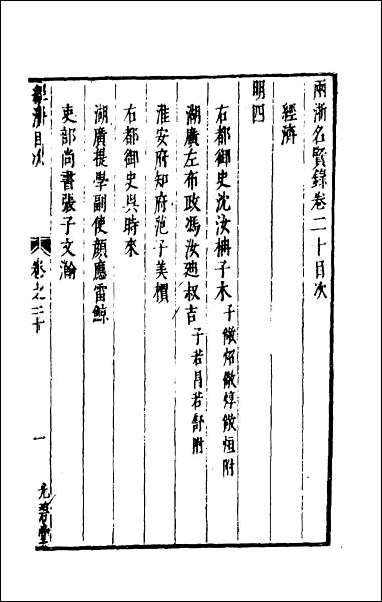 兩浙名賢錄卷二十目次
經濟
明四
右都御史沈汝楠子木子儆炌儆焞儆烜附
湖廣左布政馮汝迪叔吉子若昌若舒附
淮安府知府范子美檟
右都御史吳時來
湖廣提學副使顏應雷鯨
吏部尚書張子文瀚
經濟目次
卷之二十
一
光碧堂